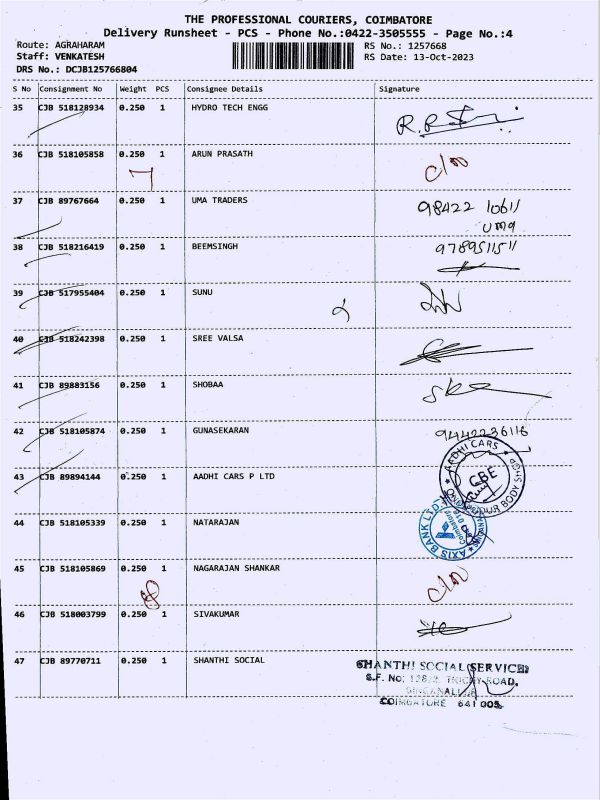 THE PROFESSIONAL COURIERS, COIMBATORE
Delivery Runsheet - PCS - Phone No.:0422-3505555 - Page No.:4
Route: AGRAHARAM RS No.: 1257668
Staff: VENKATESH RS Date: 13-Oct-2023
DRS No.: DCJB125766804
S No Consignment No Weight PCS Consignee Details Signature
35 CJB 518128934 0.250 1 HYDRO TECH ENGG
36 CJB 518105858 0.250 1 ARUN PRASATH
37 CJB 89767664 0.250 1 UMA TRADERS 98422 10611
uma
38 CJB 518216419 0.250 1 BEEMSINGH 9789511511
39 CJB 517955404 0.250 1 SUNU
40 CJB 518242398 0.250 1 SREE VALSA
41 CJB 89883156 0.250 1 SHOBAA
42 CJB 518105874 0.250 1 GUNASEKARAN 9442236116
43 CJB 89894144 0.250 1 AADHI CARS P LTD
AADHI CARS
CBE
COLOUR BODY SHOP
44 CJB 518105339 0.250 1 NATARAJAN
AXIS BANK LTD.
Coimbatore
45 CJB 518105869 0.250 1 NAGARAJAN SHANKAR
46 CJB 518003799 0.250 1 SIVAKUMAR
47 CJB 89770711 0.250 1 SHANTHI SOCIAL
SHANTHI SOCIAL SERVICES
S.F. No: TRICHY ROAD.
SINGANALLUR
COIMBATORE 641 005.